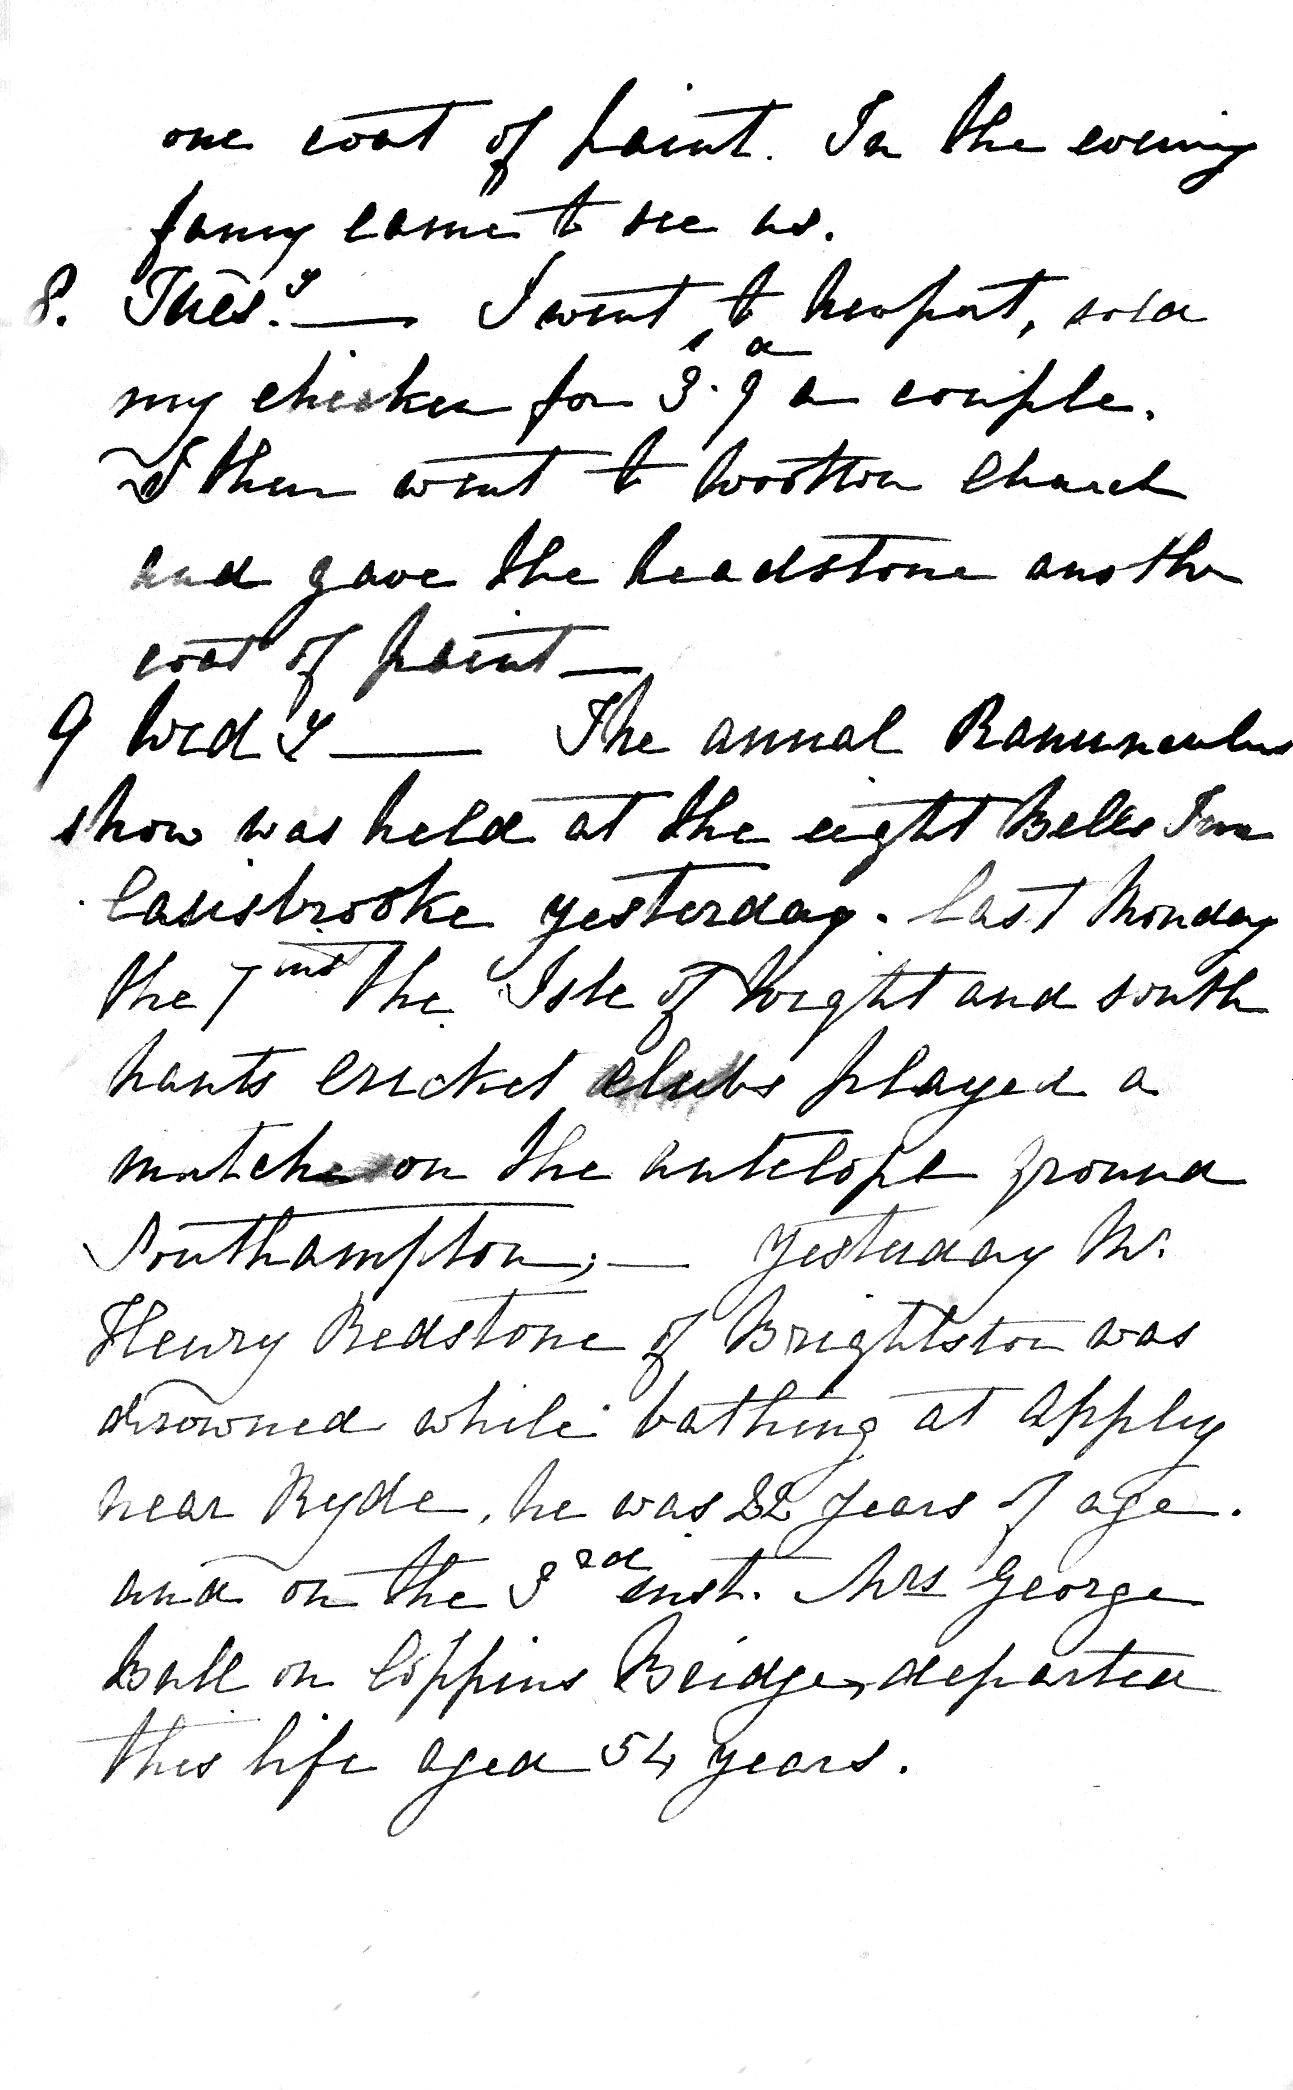 one coat of paint. In the evening
fanny came to see us.
8. Tues.y — I went to Newport, sold
my chicken for 3s.9d a couple.
I then went to Wootton Church
and gave the headstone another
coat of paint —
9 Wed y — The annual Ranunculus
show was held at the eight Bells Inn
Carisbrooke yesterday. Last Monday
the 7 inst the Isle of Wight and south
hants Cricket clubs played a
match on the antelope ground
Southampton; — yesterday Mr.
Henry Redstone of Brightston was
drowned while bathing at Apply
near Ryde, he was 22 years of age.
and on the 3rd inst. Mrs George
Ball on Coppins Bridge, departed
this life aged 54 years.